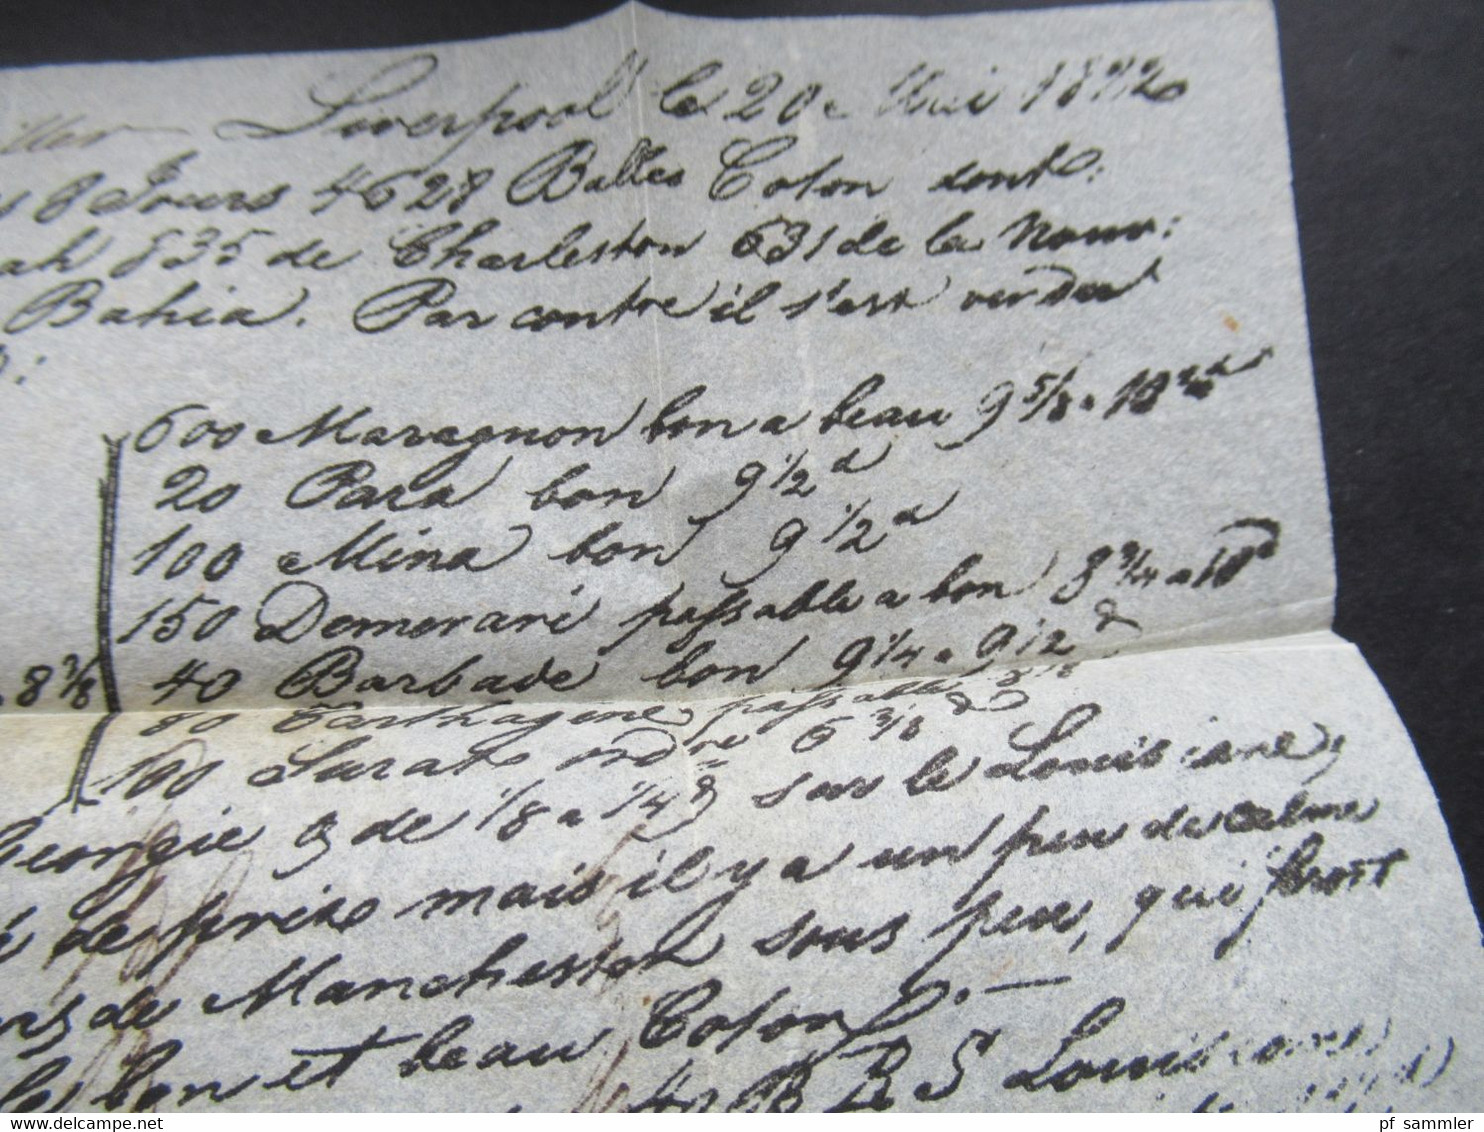 Liverpool le 20 Mai 1822
8 Jours 4628 Balles Coton dont:
835 de Charleston 631 de la Nouv:
Bahia. Par contre il s'est vendu
600 Maragnon bon a beau 9 5/8 a 10
20 Para bon 9 1/2 d
100 Mina bon 9 1/2 d
150 Demerari passable a bon 8 3/4 a 10 d
8 3/8 40 Barbade bon 9 1/4 a 9 1/2 d
80 Carthagene passable
100 Surate ordre 6 3/8 d
Georgie & de 1/8 a 1/4 d sur la Louisiane,
de prix mais il y a un peu de calme
de Manchester sous peu, qui feront
bon et beau Coton.
40 B B S Louisiane
pf_sammler